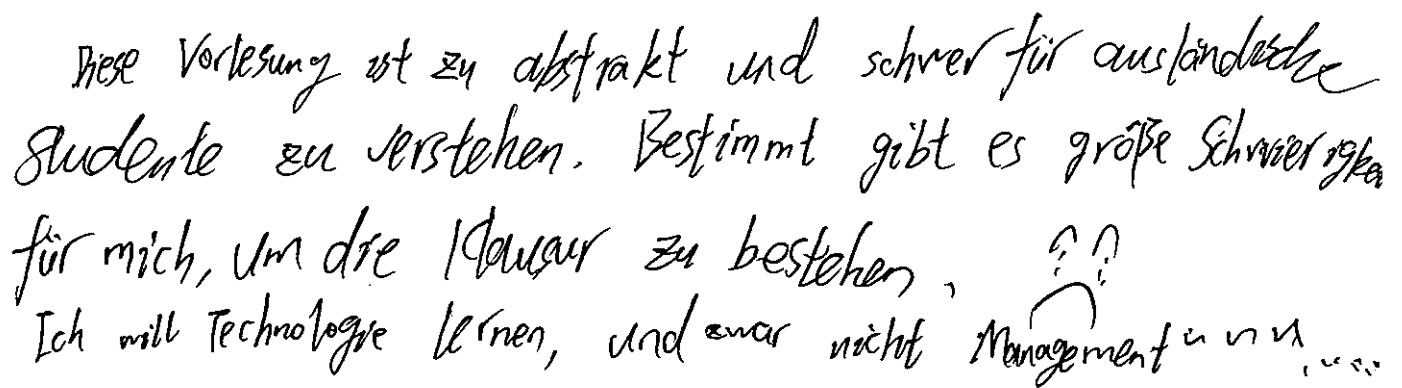 Diese Vorlesung ist zu abstrakt und schwer für ausländische
Studente zu verstehen. Bestimmt gibt es große Schwierigkei
für mich, um die Klausur zu bestehen.
Ich will Technologie lernen, und zwar nicht Management